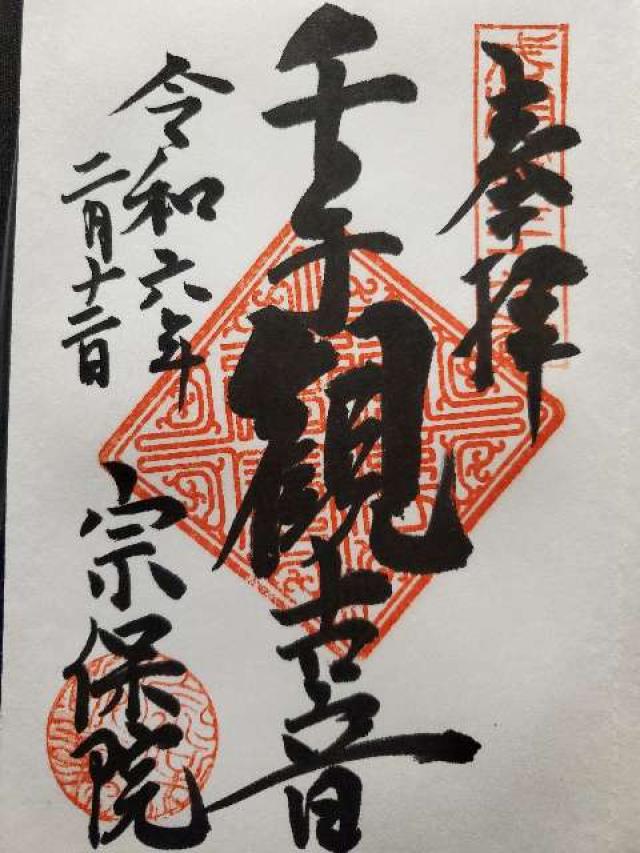 奉拝
千手観世音
令和六年
二月十二日
宗保院